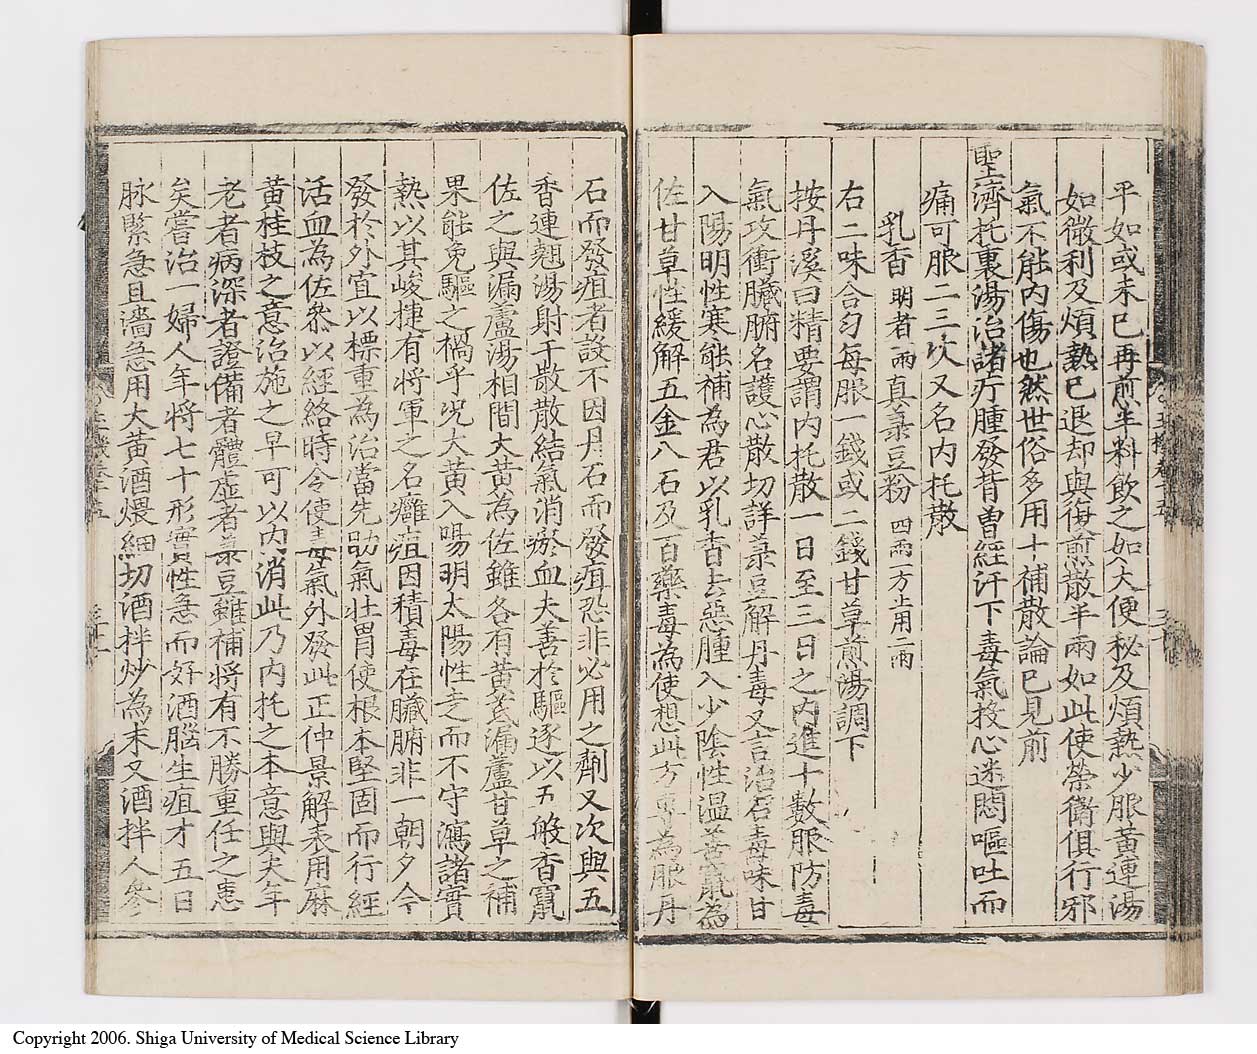 平如或未已再煎半料飲之如大便秘及煩熱少服黃連湯
如微利及煩熱已退却與復煎散半兩如此使榮衛俱行邪
氣不能內傷也然世俗多用十補散論已見前
聖濟托裏湯治諸疔腫發背曽經汗下毒氣投心迷悶嘔吐而
痛可服二三次又名內托散
乳香明者一兩真菉豆粉四兩一方止用一兩
右二味合匀每服一錢或二錢甘草煎湯調下
按丹溪曰精要謂內托散一日至三日之內進十數服防毒
氣攻衝臟腑名護心散切詳菉豆解丹毒又言治石毒味甘
入陽明性寒能補為君以乳香去惡腫入少陰性溫善竄為
佐甘草性緩解五金八石及百藥毒為使想此方專為服丹
石而發疽者設不因丹石而發疽恐非必用之劑又次與五
香連翹湯射干散散結氣消瘀血夫善於驅逐以五般香竄
佐之與漏蘆湯相間大黃為佐雖各有黃芪漏蘆甘草之補
果能免驅之禍乎况大黃入陽明太陽性走而不守瀉諸實
熱以其峻捷有將軍之名癰疽因積毒在臟腑非一朝夕今
發於外宜以標重為治當先助氣壯胃使根本堅固而行經
活血為佐叅以經絡時令使毒氣外發此正仲景解表用麻
黃桂枝之意治施之早可以內消此乃內托之本意與夫年
老者病深者證備者體虛者菉豆雖補將有不勝重任之患
矣嘗治一婦人年將七十形實性急而好酒腦生疽才五日
脉緊急且濇急用大黃酒煨細切酒拌炒為末又酒拌人參
Copyright 2006. Shiga University of Medical Science Library